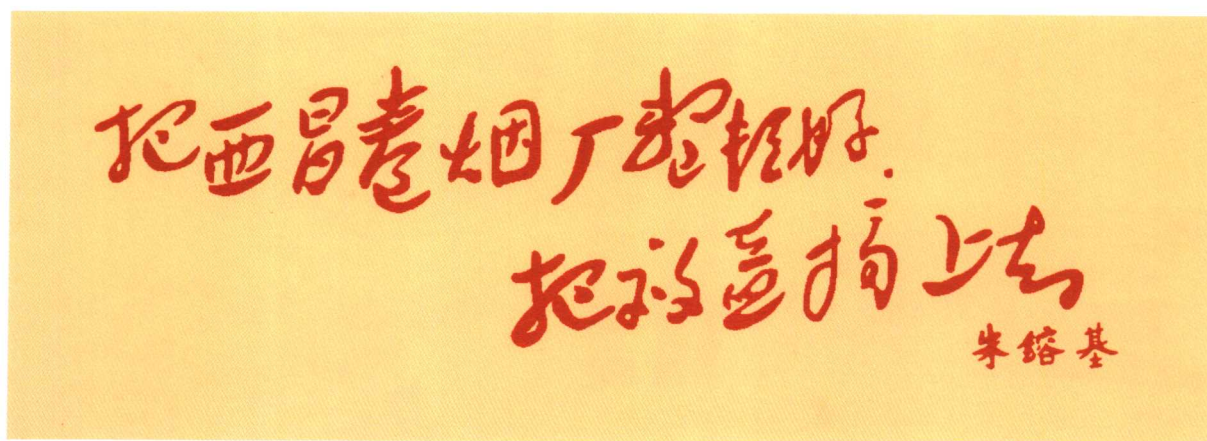 把西昌卷烟厂整顿好.
把效益搞上去
朱镕基